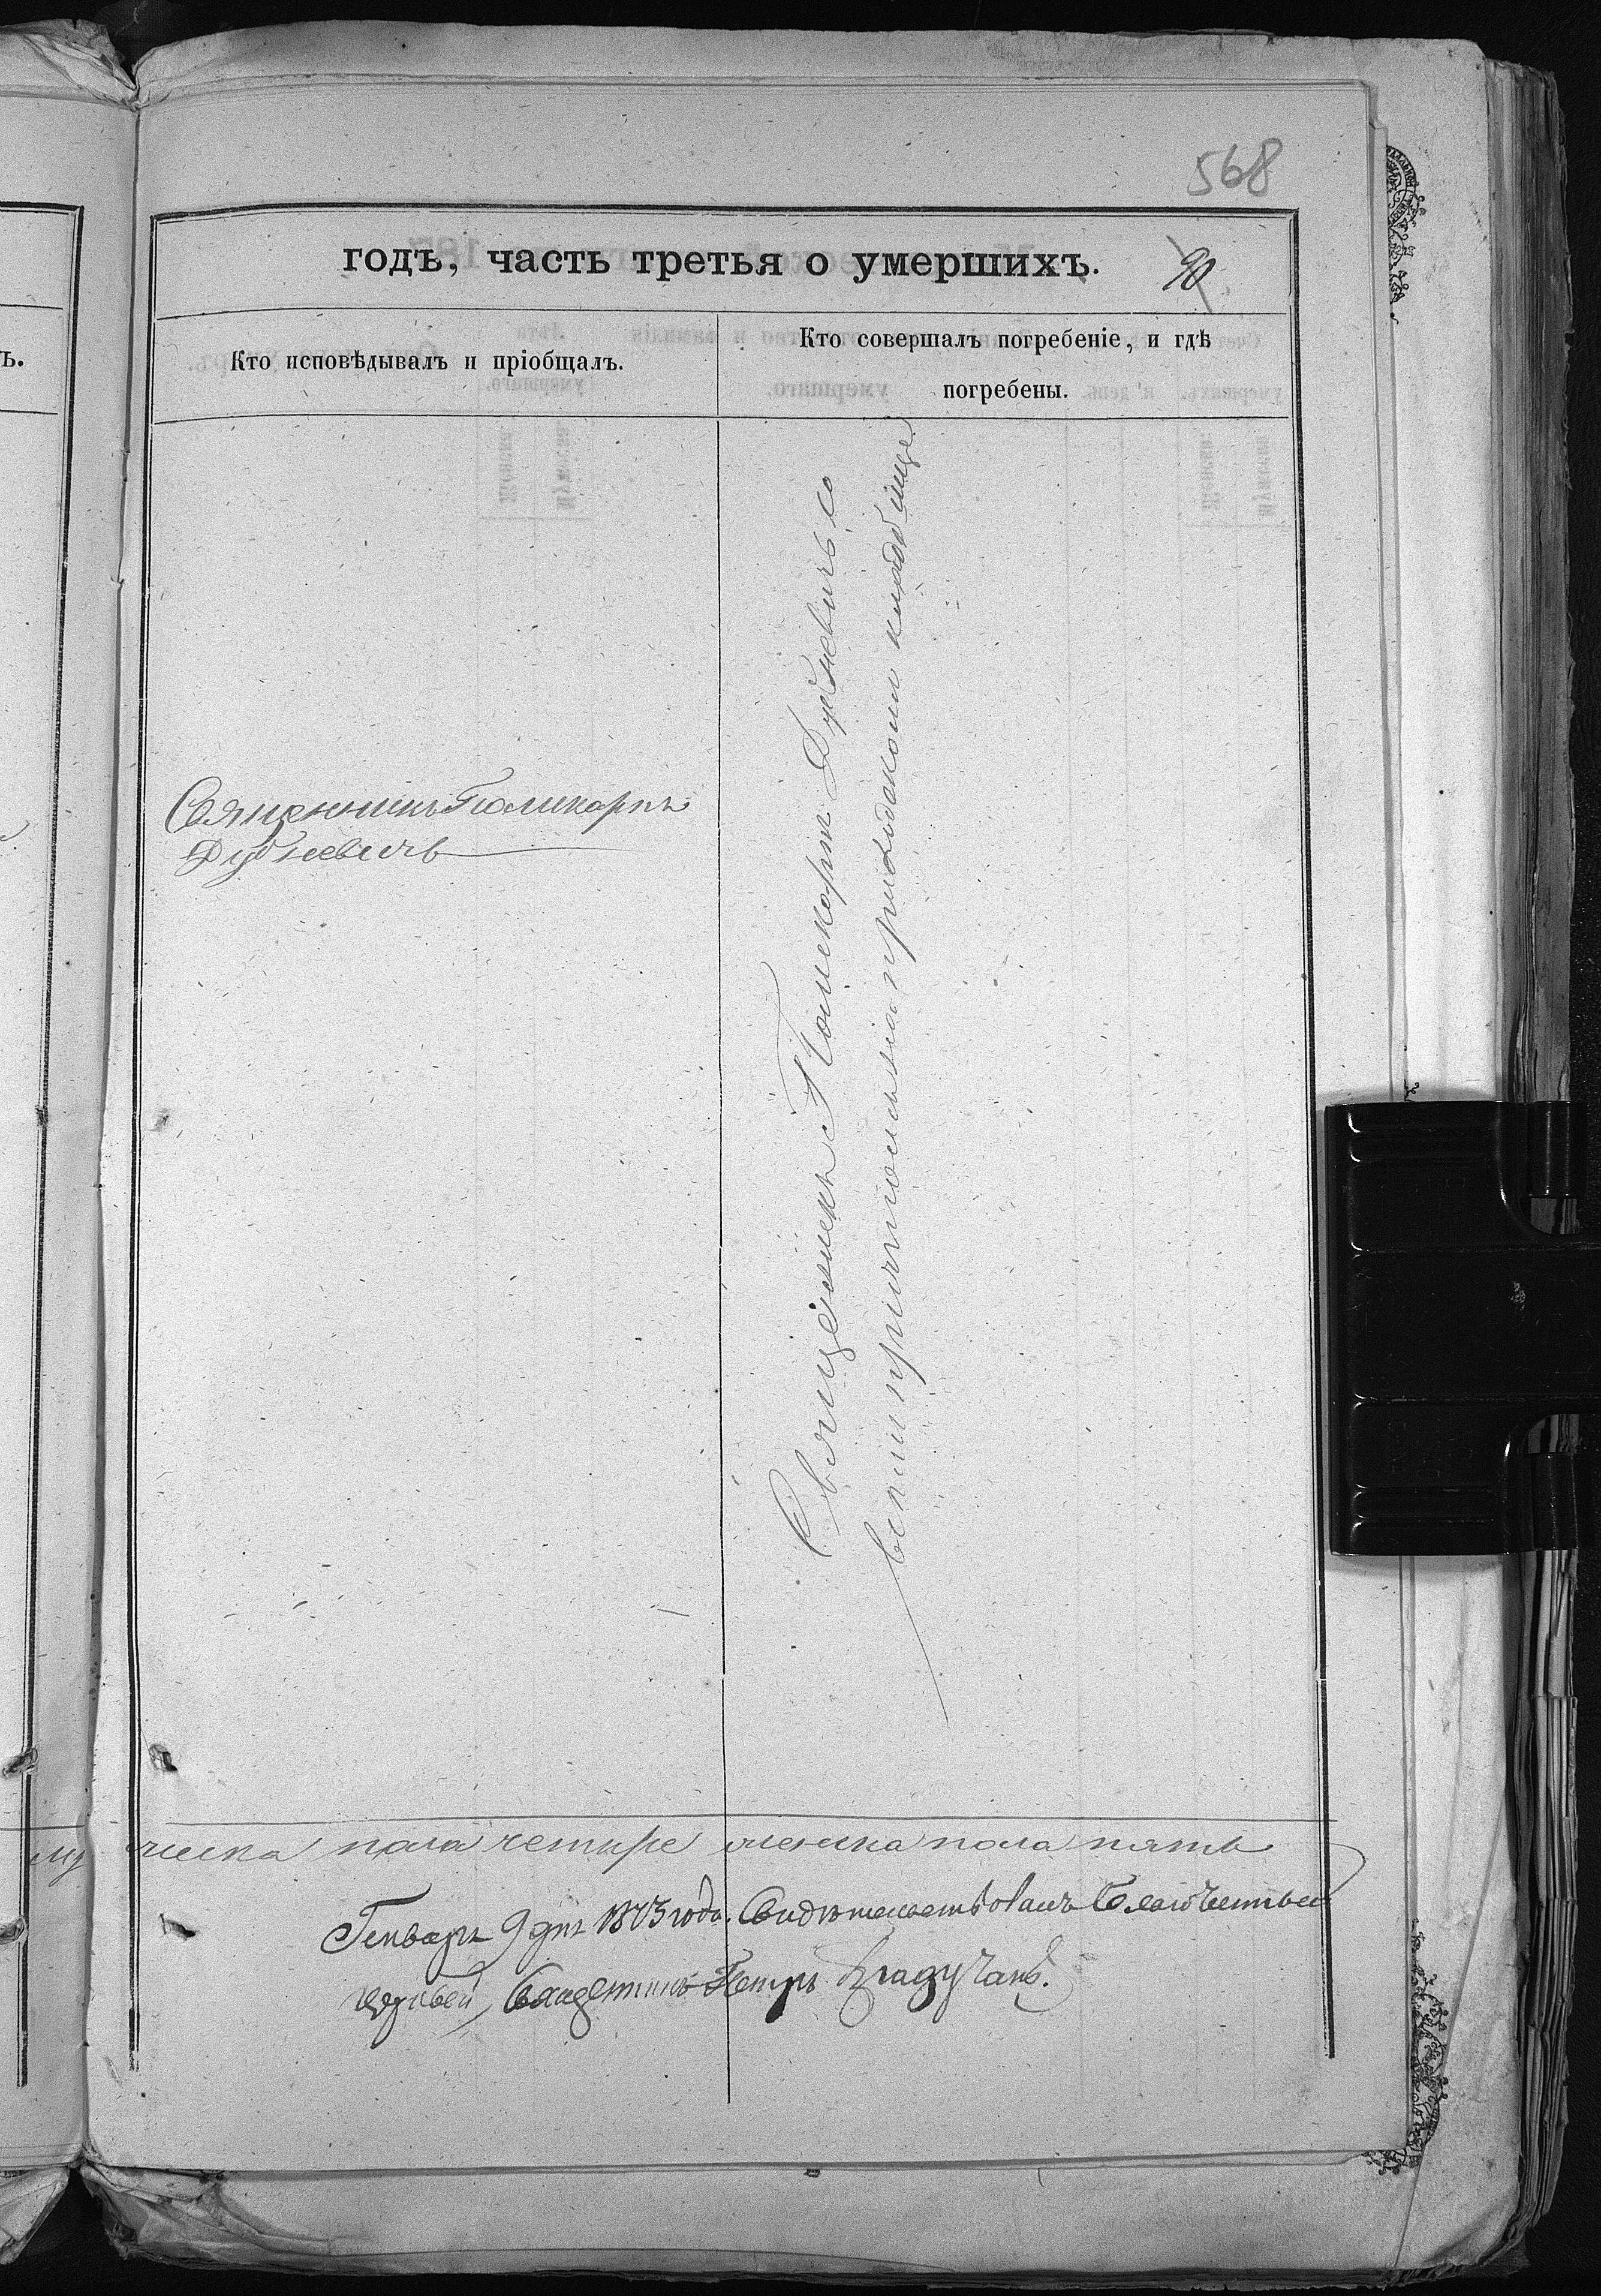 568
годъ, часть третья о умершихъ.
90
Кто исповѣдывалъ и пріобщалъ.
Кто совершалъ погребеніе, и гдѣ
погребены.
Священникъ Поликарпъ
Дубневичъ
Священникъ Поликарпъ Дубневичъ со
всѣмъ причтомъ на приходскомъ кладбище
ъ.
му
жеска пола четыре женска пола пять
Генваря 9 дня 1873 года. Свидѣтельствовалъ Благочинный
церквей, Священникъ Петръ